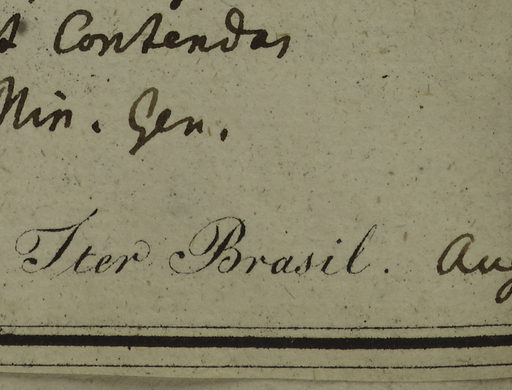 t Contendas
Min. Gen.
Iter Brasil. Aug